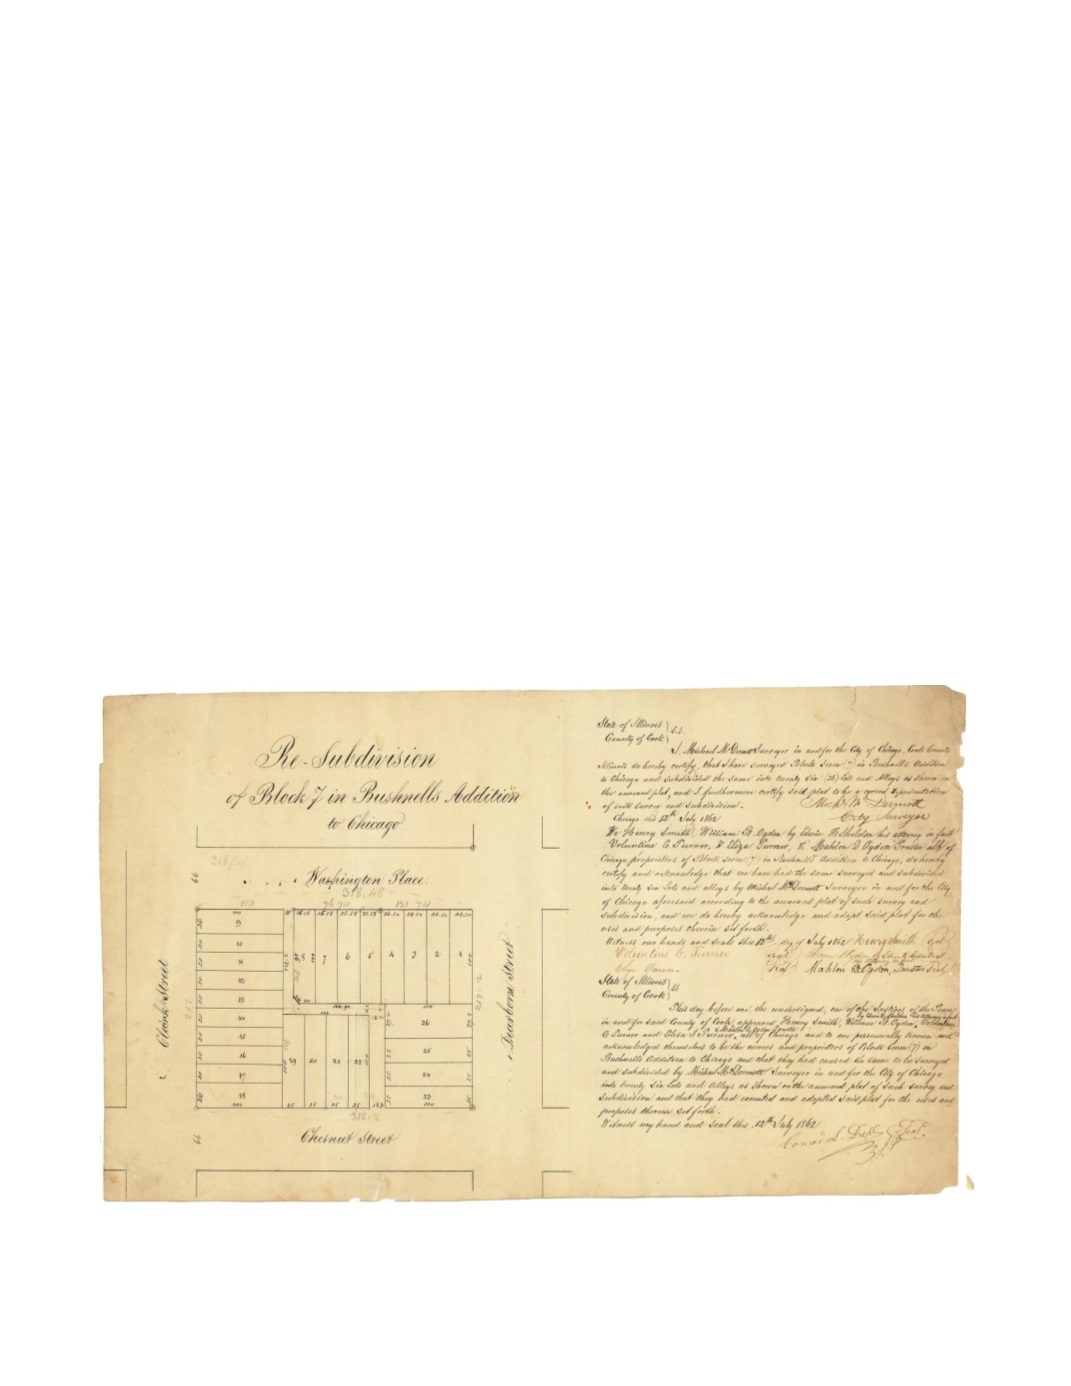 Re-Subdivision
of Block 7 in Bushnells Addition
to Chicago
Washington Place.
318.48
110
76 74
131 74
66
Clark Street
Dearborn Street
218.2
9
10
11
12
13
14
15
16
17
18
8
7
6
5
4
3
2
1
19
20
21
22
26
25
24
23
100
25
25
25
25
100
318.2
66
Chesnut Street
State of Illinois
County of Cook } S.S
I, Michael McDermott Surveyor in and for the City of Chicago, Cook County
Illinois do hereby certify, that I have surveyed Block Seven (7) in Bushnells Addition
to Chicago and subdivided the same into twenty six (26) lots and Alleys as shown on
the annexed plat, and I furthermore certify said plat to be a representation
of said survey and subdivision.
Mich. McDermott
Chicago this 12th July 1862
City Surveyor
We Henry Smith, William B. Ogden by Edwin H. Sheldon his attorney in fact
Volintine C. Turner, & Eliza Turner, & Mahlon D. Ogden Trustee all of
Chicago proprietors of Block seven (7) in Bushnells Addition to Chicago, do hereby
certify and acknowledge that we have had the same surveyed and subdivided
into twenty six lots and alleys by Michael McDermott Surveyor in and for the City
of Chicago aforesaid according to the annexed plat of such survey and
subdivision, and we do hereby acknowledge and adopt said plat for the
uses and purposes therein set forth.
Witness our hands and seals this 12th day of July 1862 Henry Smith Seal
Volintine C. Turner
Seal
Eliza Turner
Seal
Mahlon D. Ogden, Trustee Seal
State of Illinois
County of Cook } SS
This day before me, the undersigned, one of the Justices of the Peace
in and for said County of Cook, appeared Henry Smith, William B. Ogden,
C Turner and Eliza Turner, all of Chicago and to me personally known and
acknowledged themselves to be the owners and proprietors of Block Seven (7) in
Bushnells Addition to Chicago and that they had caused the same to be surveyed
and subdivided by Michael McDermott Surveyor in and for the City of Chicago
into twenty six lots and Alleys as shown on the annexed plat of such survey and
subdivision and that they had executed and adopted said plat for the uses and
purposes therein set forth.
Witness my hand and seal this 12th July 1862
Seal